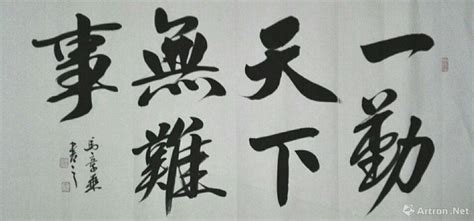 一勤
天下
無難
事
书之
Artron.Net